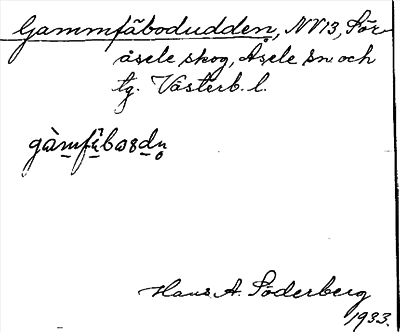 Gammfäbodudden, NV13, Sör-
åsele skog, Åsele sn och
tg. Västerb. l.
Hans A. Söderberg
1933.